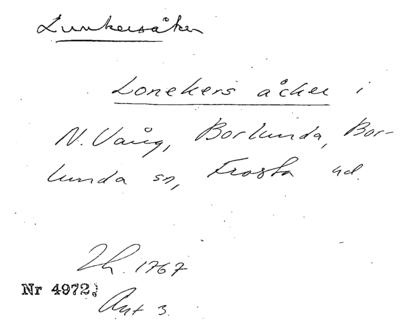 Lunkersåker
Lonekers åcker i
N. Vång, Borlunda, Bor-
lunda sn, Frosta hd.
Lh. 1767
Nr 4972.
Akt 3.